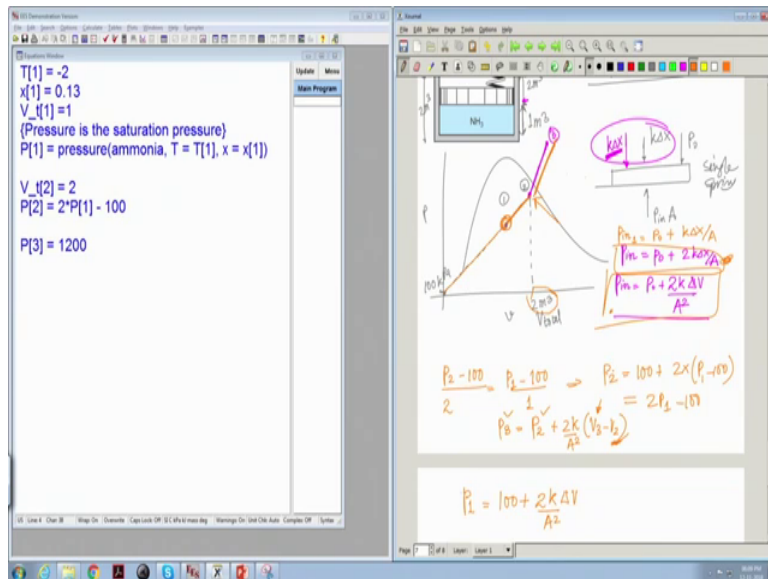 EES Demonstration Version
File Edit Search Options Calculate Tables Plots Windows Help Examples
Equations Window
T[1] = -2
x[1] = 0.13
V_t[1] =1
{Pressure is the saturation pressure}
P[1] = pressure(ammonia, T = T[1], x = x[1])
V_t[2] = 2
P[2] = 2*P[1] - 100
P[3] = 1200
Update Menu
Main Program
Line 4 Char 38 Wrap On Overwrite Caps Lock Off SI C kPa kJ mass deg Warnings On Unit Chk Auto Complex Off Syntax
Xournal
File Edit View Page Tools Options Help
2m³
1m³
NH₃
kΔx kΔx P₂
single
spring
Pin A
P
① ② ③
100 kPa
v
2m3
Vtotal
Pin₁ = P₀ + kΔx/A
Pin = P₀ + 2kΔx/A
Pin = P₀ + 2kΔV/A²
P₂-100/2 = P₁-100/1 ⇒ P₂ = 100 + 2x(P₁-100)
= 2P₁-100
P₃ = P₂ + 2k/A² (V₃-V₂)
P₁ = 100 + 2kΔV/A²
Page 7 of 8 Layer: Layer 1